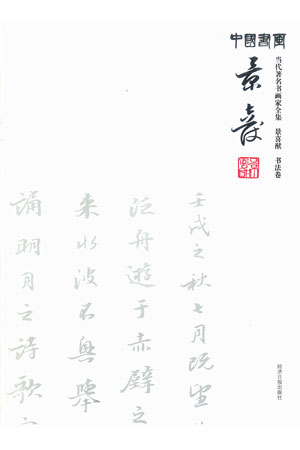 中國書風
当代著名书画家全集 景喜猷 书法卷
景
壬戌之秋七月既望
泛舟遊于赤壁之
来水波不興舉
誦明月之詩歌
经济日报出版社